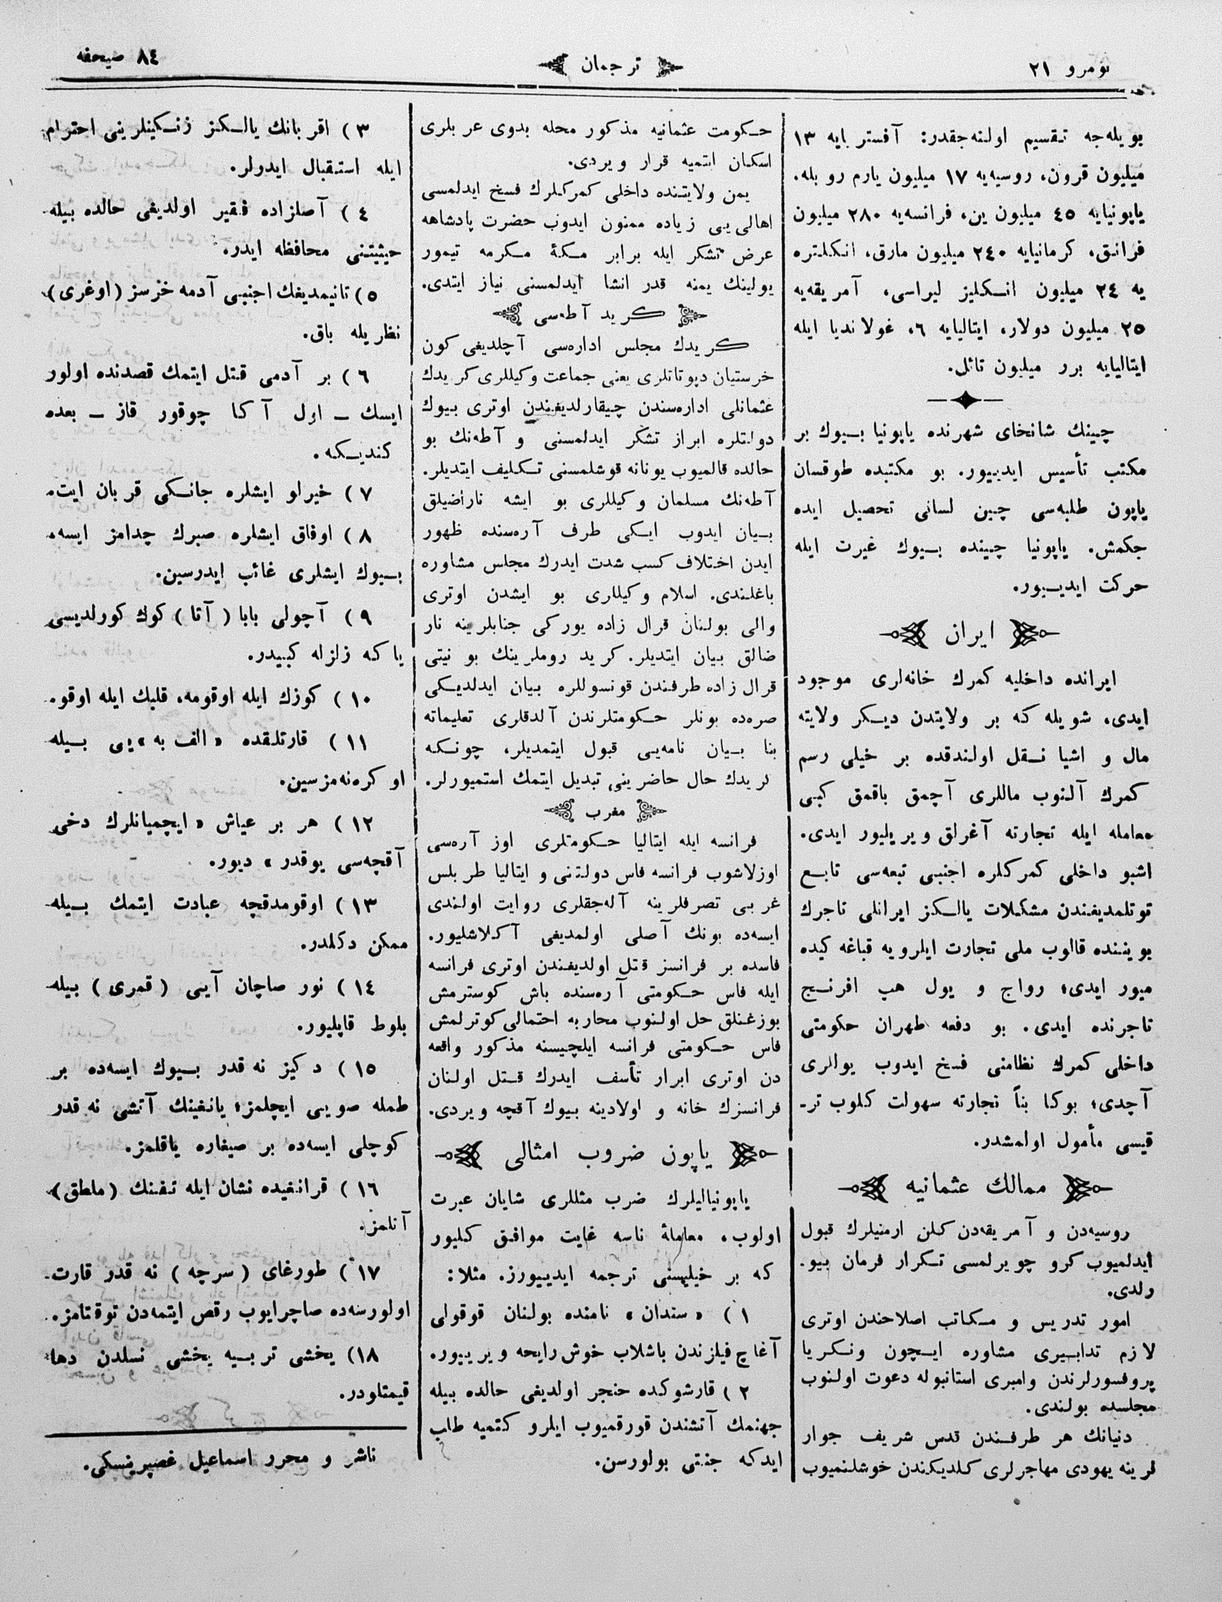 نومرو ٢١
ترجمان
٨٤ صحیفه
بویله‌جه تقسیم اولنه‌جقدر: آفستریایه ١٣
میلیون قرون، روسیه‌یه ١٧ میلیون یارم روبله.
یاپونیایه ٤٥ میلیون ین، فرانسه‌یه ٢٨٠ میلیون
فرانق، کرمانیایه ٢٤٠ میلیون مارق، انکلتره
یه ٢٤ میلیون انکلیز لیراسی، آمریقه‌یه
٢٥ میلیون دولار، ایتالیایه ٦، غولاندیا ایله
ایتالیایه برر میلیون تائل.
چینك شانخای شهرنده یاپونیا بیوك بر
مکتب تأسیس ایدییور. بو مکتبده طوقسان
یاپون طلبه‌سی چین لسانی تحصیل ایده
جکمش. یاپونیا چینده بیوك غیرت ایله
حرکت ایدییور.
ایران
ایرانده داخلیه کمرك خانه‌لری موجود
ایدی، شویله که بر ولایتدن دیکر ولایته
مال و اشیا نقل اولندقده بر خیلی رسم
کمرك آلنوب ماللری آچمق باقمق کبی
معامله ایله تجارته آغرلق ویریلیور ایدی.
اشبو داخلی کمرکلره اجنبی تبعه‌سی تابع
توتلمدیغندن مشکلات یالکز ایرانلی تاجرك
بویننده قالوب ملی تجارت ایلرویه قباغه کیده
میور ایدی؛ رواج و یول هپ افرنج
تاجرنده ایدی. بو دفعه طهران حکومتی
داخلی کمرك نظامنی فسخ ایدوب یوللری
آچدی؛ بوکا بناً تجارته سهولت کلوب تر-
قیسی مأمول اولمشدر.
ممالك عثمانیه
روسیه‌دن و آمریقه‌دن کلن ارمنیلرك قبول
ایدلمیوب کرو چویرلمسی تکرار فرمان بیو-
رلدی.
امور تدریس و مکاتب اصلاحندن اوتری
لازم تدابیری مشاوره ایچون ونکریا
پروفسورلرندن وامبری استانبوله دعوت اولنوب
مجلسده بولندی.
دنیانك هر طرفندن قدس شریف جوار
لرینه یهودی مهاجرلری کلدیکندن خوشلنمیوب
حکومت عثمانیه مذکور محله بدوی عربلری
اسکان ایتمیه قرار ویردی.
یمن ولایتنده داخلی کمرکلرك فسخ ایدلمسی
اهالی‌یی زیاده ممنون ایدوب حضرت پادشاهه
عرض تشکر ایله برابر مکهٔ مکرمه تیمور
یولینك یمنه قدر انشا ایدلمسنی نیاز ایتدی.
کرید آطه‌سی
کریدك مجلس اداره‌سی آچلدیغی کون
خرستیان دپوتاتلری یعنی جماعت وکیللری کریدك
عثمانلی اداره‌سندن چیقارلدیغندن اوتری بیوك
دولتلره ابراز تشکر ایدلمسنی و آطه‌نك بو
حالده قالمیوب یونانه قوشلمسنی تکلیف ایتدیلر.
آطه‌نك مسلمان وکیللری بو ایشه ناراضیلق
بیان ایدوب ایکی طرف آره‌سنده ظهور
ایدن اختلاف کسب شدت ایدرك مجلس مشاوره
باغلندی. اسلام وکیللری بو ایشدن اوتری
والی بولنان قرال زاده یورکی جنابلرینه نار
ضالق بیان ایتدیلر. کرید روملرینك بو نیتی
قرال زاده طرفندن قونسوللره بیان ایدلدیکی
صره‌ده بونلر حکومتلرندن آلدقلری تعلیماته
بنا بیان نامه‌یی قبول ایتمدیلر، چونکه
کریدك حال حاضرینی تبدیل ایتمك استمیورلر.
مغرب
فرانسه ایله ایتالیا حکومتلری اوز آره‌سی
اوزلاشوب فرانسه فاس دولتنی و ایتالیا طربلس
غربی تصرفلرینه آله‌جقلری روایت اولندی
ایسه‌ده بونك آصلی اولمدیغی آکلاشلیور.
فاسده بر فرانسز قتل اولدیغندن اوتری فرانسه
ایله فاس حکومتی آره‌سنده باش کوسترمش
بوزغنلق حل اولنوب محاربه احتمالی کوترلمش
فاس حکومتی فرانسه ایلچیسنه مذکور واقعه
دن اوتری ابرار تأسف ایدرك قتل اولنان
فرانسزك خانه و اولادینه بیوك آقچه ویردی.
یاپون ضروب امثالی
یاپونیالیلرك ضرب مثللری شایان عبرت
اولوب، معاملهٔ ناسه غایت موافق کلیور
که بر خیلیسنی ترجمه ایدییورز. مثلا:
١) «سندان» نامنده بولنان قوقولی
آغاچ فیلزندن باشلاب خوش رایحه ویرییور.
٢) قارشوکده حنجر اولدیغی حالده بیله
جهنمك آتشندن قورقمیوب ایلرو کتمیه طلب
ایدکه جنتی بولورسن.
٣) اقربانك یالکز زنکینلرینی احترام
ایله استقبال ایدولر.
٤) آصلزاده فقیر اولدیغی حالده بیله
حیثیتنی محافظه ایدر.
٥) تانیمدیغك اجنبی آدمه خزسز (اوغری)
نظریله باق.
٦) بر آدمی قتل ایتمك قصدنده اولور
ایسك – اول آکا چوقور قاز – بعده
کندیکه.
٧) خیرلو ایشلره جانکی قربان ایت.
٨) اوفاق ایشلره صبرك چدامز ایسه،
بیوك ایشلری غائب ایدرسین.
٩) آچولی بابا (آتا) کوك کورلدیسی
یا که زلزله کبیدر.
١٠) کوزك ایله اوقومه، قلبك ایله اوقو.
١١) قارتلقده «الف به» یی بیله
اوکره‌نه‌مزسین.
١٢) هر بر عیاش «ایچمیانلرك دخی
آقچه‌سی یوقدر» دیور.
١٣) اوقومدقچه عبادت ایتمك بیله
ممکن دکلدر.
١٤) نور صاچان آیی (قمری) بیله
بلوط قاپلیور.
١٥) دکیز نه قدر بیوك ایسه‌ده بر
طمله صویی ایچلمز؛ یانغینك آتشی نه قدر
کوچلی ایسه‌ده بر صیغاره یاقلمز.
١٦) قرانغیده نشان ایله تفنك (ملطق)
آتلمز.
١٧) طورغای (سرچه) نه قدر قارت
اولورسه‌ده صاچرایوب رقص ایتمه‌دن توقتامز.
١٨) یخشی تربیه یخشی نسلدن دها
قیمتلودر.
ناشر و محرر اسماعیل غصپرینسکی.